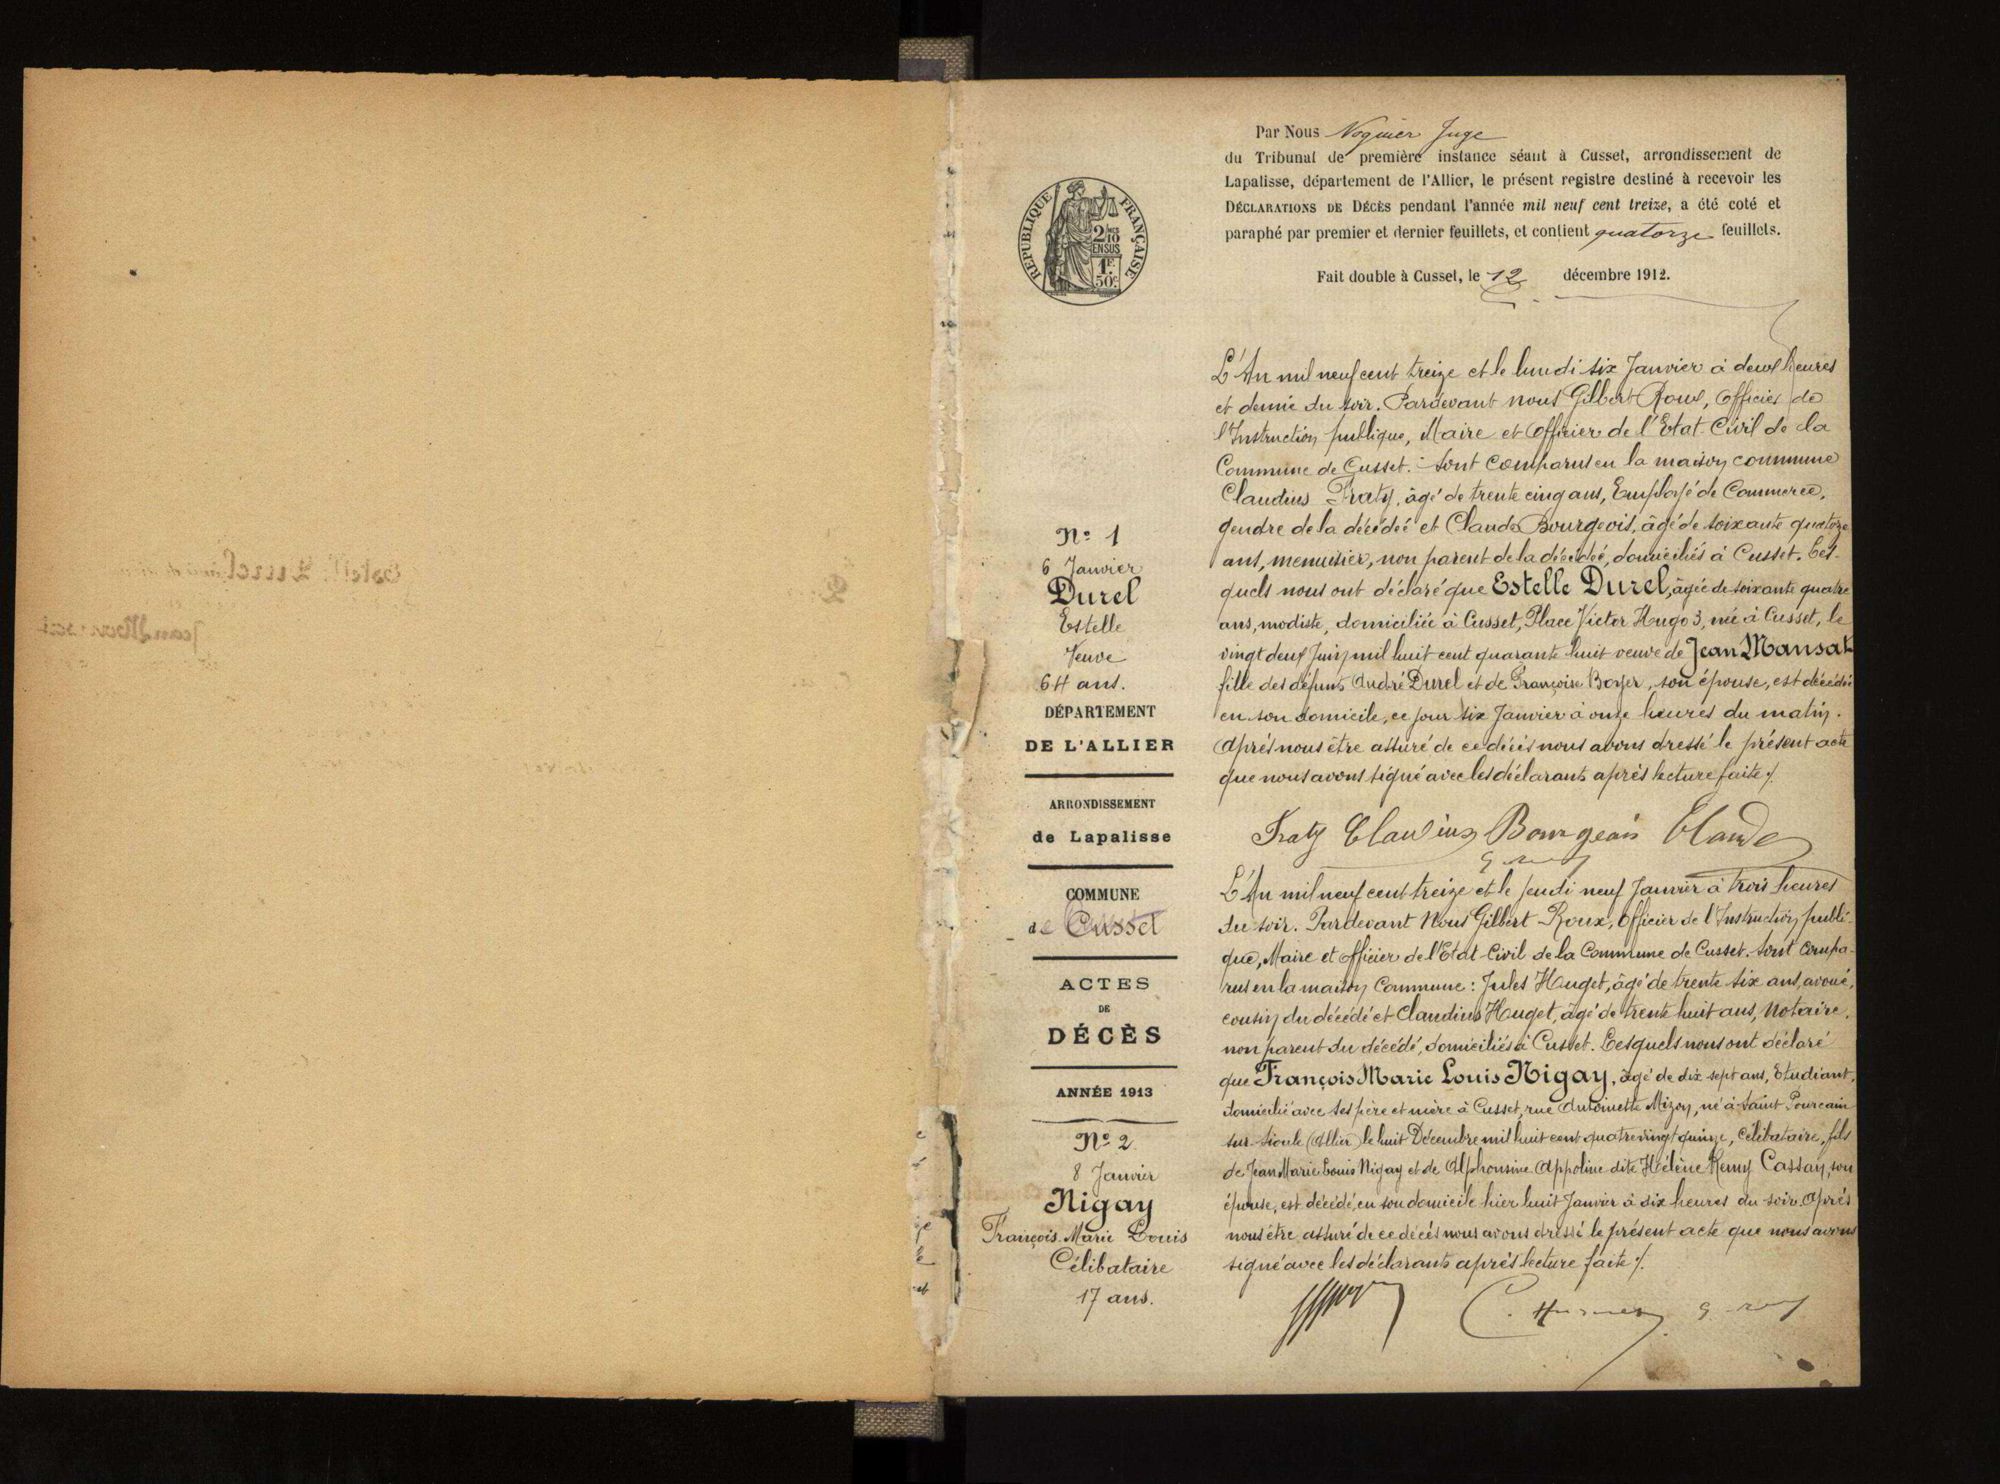 Par Nous Noguier Juge
du Tribunal de première instance séant à Cusset, arrondissement de
Lapalisse, département de l'Allier, le présent registre destiné à recevoir les
DÉCLARATIONS DE DÉCÈS pendant l'année mil neuf cent treize, a été coté et
paraphé par premier et dernier feuillets, et contient quatorze feuillets.
Fait double à Cusset, le 12 décembre 1912.
RÉPUBLIQUE FRANÇAISE
2/10
EN SUS
1F
50c
N° 1
6 Janvier
Durel
Estelle
Veuve
64 ans.
L'An mil neuf cent treize et le lundi six Janvier à deux heures
et demie du soir. Pardevant nous Gilbert Roux, Officier de
l'Instruction publique, Maire et Officier de l'Etat-Civil de la
Commune de Cusset. Sont comparus en la maison commune
Claudius Fraty, âgé de trente cinq ans, Employé de Commerce,
gendre de la décédée et Claude Bourgeois, âgé de soixante quatorze
ans, menuisier, non parent de la décédée, domiciliés à Cusset. Les-
quels nous ont déclaré que Estelle Durel, âgée de soixante quatre
ans, modiste, domiciliée à Cusset, Place Victor Hugo 3, née à Cusset, le
vingt deux Juin mil huit cent quarante huit veuve de Jean Mansat
fille des défunts André Durel et de Françoise Boyer, son épouse, est décédée
en son domicile, ce jour six Janvier à onze heures du matin.
Après nous être assuré de ce décès nous avons dressé le présent acte
que nous avons signé avec les déclarants après lecture faite ./.
Fraty Claudius Bourgeois Claude
DÉPARTEMENT
DE L'ALLIER
ARRONDISSEMENT
de Lapalisse
COMMUNE
de Cusset
ACTES
DE
DÉCÈS
ANNÉE 1913
N° 2
8 Janvier
Nigay
François Marie Louis
Célibataire
17 ans.
L'An mil neuf cent treize et le Jeudi neuf Janvier à trois heures
du soir. Pardevant Nous Gilbert Roux, Officier de l'Instruction publi-
que, Maire et Officier de l'Etat-Civil de la Commune de Cusset. Sont compa-
rus en la maison Commune : Jules Huguet, âgé de trente six ans, avoué,
cousin du décédé et Claudius Huguet, âgé de trente huit ans, Notaire,
non parent du décédé, domiciliés à Cusset. Lesquels nous ont déclaré
que François Marie Louis Nigay, âgé de dix sept ans, Etudiant,
domicilié avec ses père et mère à Cusset, rue Antoinette Mizon, né à Saint Pourcain
sur Sioule (Allier) le huit Décembre mil huit cent quatre vingt quinze, Célibataire, fils
de Jean Marie Louis Nigay et de Alphonsine Appoline dite Hélène Remy Cassan, son
épouse, est décédé, en son domicile hier huit Janvier à dix heures du soir. Après
nous être assuré de ce décès nous avons dressé le présent acte que nous avons
signé avec les déclarants après lecture faite ./.